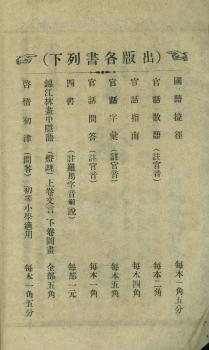 (出版各書列下)
國語捷徑 每本一角五分
官話散語 (註官音) 每本二角
官話指南 每本四角
官話字彙 (註官音) 每本五角
官話問答 (註官音) 每本一角
四書 (註羅馬字音解說) 每部一元
錦江林書中隱語 (燈謎) 上卷文言 下卷圖畫 全部五角
啓悟初津 (問答) 初等小學適用 每本一角五分